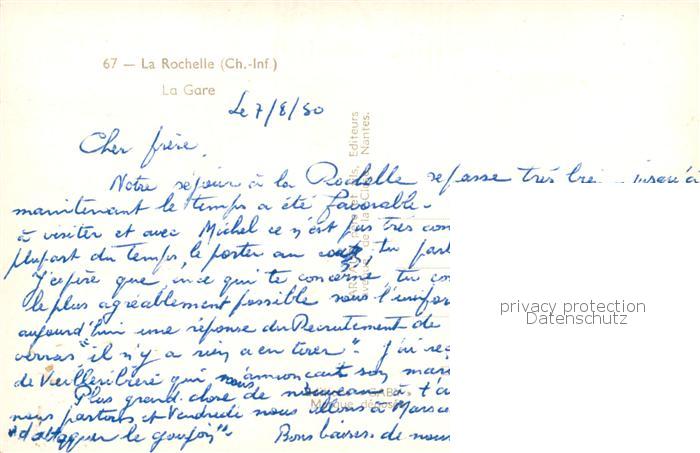 67 — La Rochelle (Ch.-Inf.)
La Gare
Le 7/8/50
Cher frère,
Notre séjour à la Rochelle se passe très bien jusqu'à
maintenant le temps a été favorable.
à visiter et avec Michel ce n'est pas très
plupart du temps, le porter au tu
J'espère que, en ce qui te concerne, tu
le plus agréablement possible sous l'
aujourd'hui une réponse du Recrutement de
verras "il n'y a rien a en tirer". J'ai
de qui nous annonçait son
Plus grand chose de nouveau à
nous partons et Vendredi nous allons à
le goujon". Bons baisers de nous
Editeurs
Nantes.
privacy protection
Datenschutz